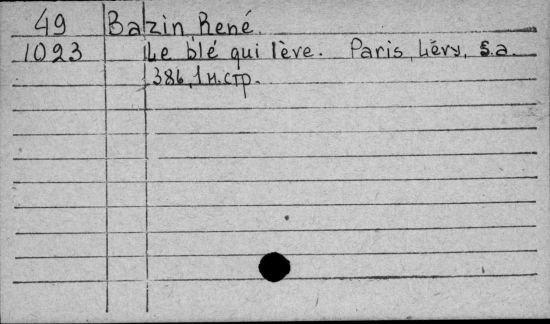 49 Bazin René.
1023 Le blé qui lève. Paris, Lévy, s.a.
386, 1 н.стр.